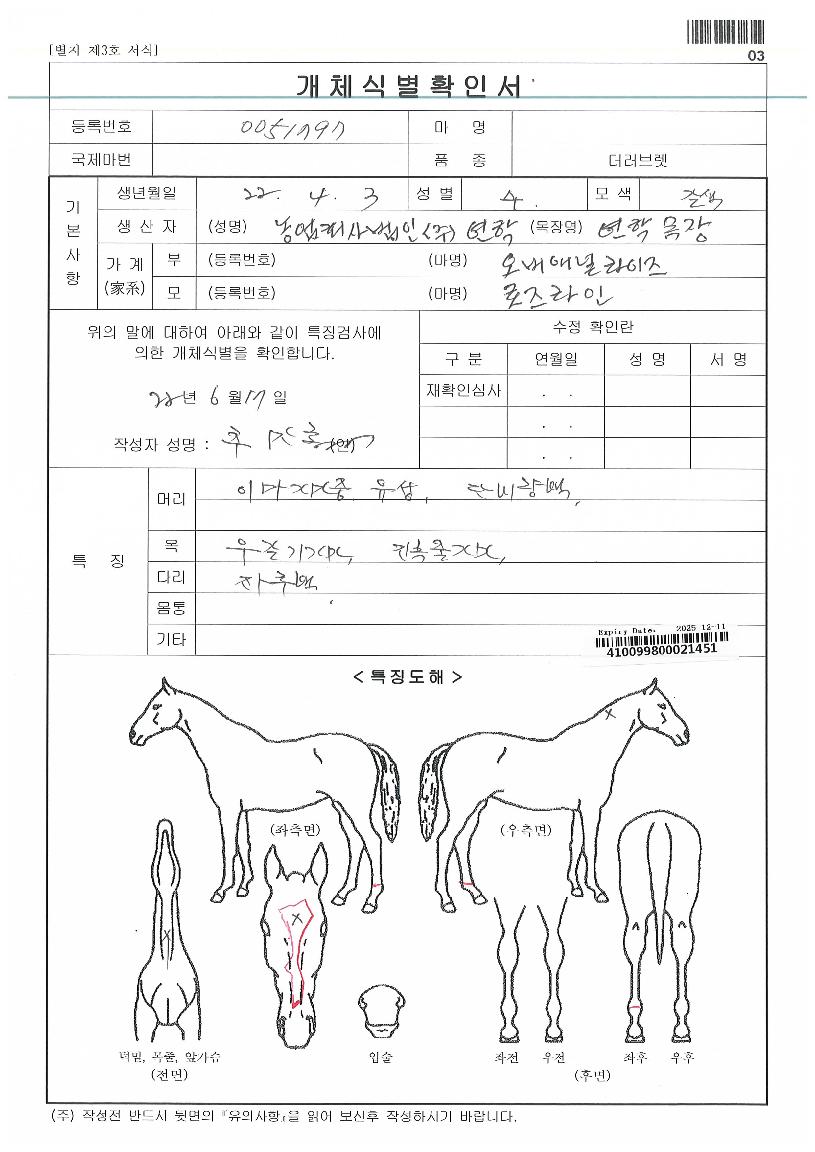 [별지 제3호 서식]
03
개체식별확인서
등록번호 0051797 마 명
국제마번 품 종 더러브렛
기본사항
생년월일 22. 4. 3 성 별 수. 모 색 갈색
생 산 자 (성명) 농업회사법인(주) 연학 (목장명) 연학 목장
가 계 (家系) 부 (등록번호) (마명) 오버애널라이즈
모 (등록번호) (마명) 로즈라인
위의 말에 대하여 아래와 같이 특징검사에
의한 개체식별을 확인합니다.
22년 6월 17일
작성자 성명 : (인)
수정 확인란
구 분 연월일 성 명 서 명
재확인심사 . .
. .
. .
특 징
머리 유성,
목
다리 좌후백
몸통
기타
Expiry Date. 2025-12-11
410099800021451
< 특징도해 >
(좌측면) (우측면)
턱밑, 목줄, 앞가슴 입술 좌전 우전 좌후 우후
(전면) (후면)
(주) 작성전 반드시 뒷면의 『유의사항』을 읽어 보신후 작성하시기 바랍니다.